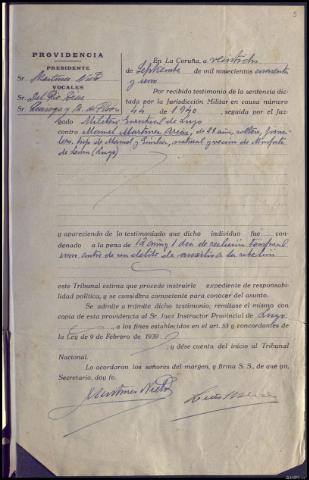 5
PROVIDENCIA
PRESIDENTE
Sr. Martínez Nieto
VOCALES
Sr. Del Río
Sr.
En La Coruña, a veintiocho
de Septiembre de mil novecientos cuarenta
y uno.
Por recibido testimonio de la sentencia dic-
tada por la Jurisdicción Militar en causa número
44 de 1940, seguida por el Juz-
gado Militar Eventual de Lugo
contra Manuel Martínez, de años, soltero, jorna-
lero, hijo de Manuel y, natural y vecino de Monforte
de Lemos (Lugo)
y apareciendo de lo testimoniado que dicho individuo fue con-
denado a la pena de 12 años y 1 día de reclusión temporal
como autor de un delito de auxilio a la rebelión
este Tribunal estima que procede instruirle expediente de responsabi-
lidad política, y se considera competente para conocer del asunto.
Se admite a trámite dicho testimonio; remítase el mismo con
copia de esta providencia al Sr. Juez Instructor Provincial de Lugo
, a los fines establecidos en el art. 53 y concordantes de
la Ley de 9 de Febrero de 1939
y dése cuenta del inicio al Tribunal
Nacional.
Lo acordaron los señores del margen, y firma S. S., de que yo,
Secretario, doy fe.
Martínez Nieto